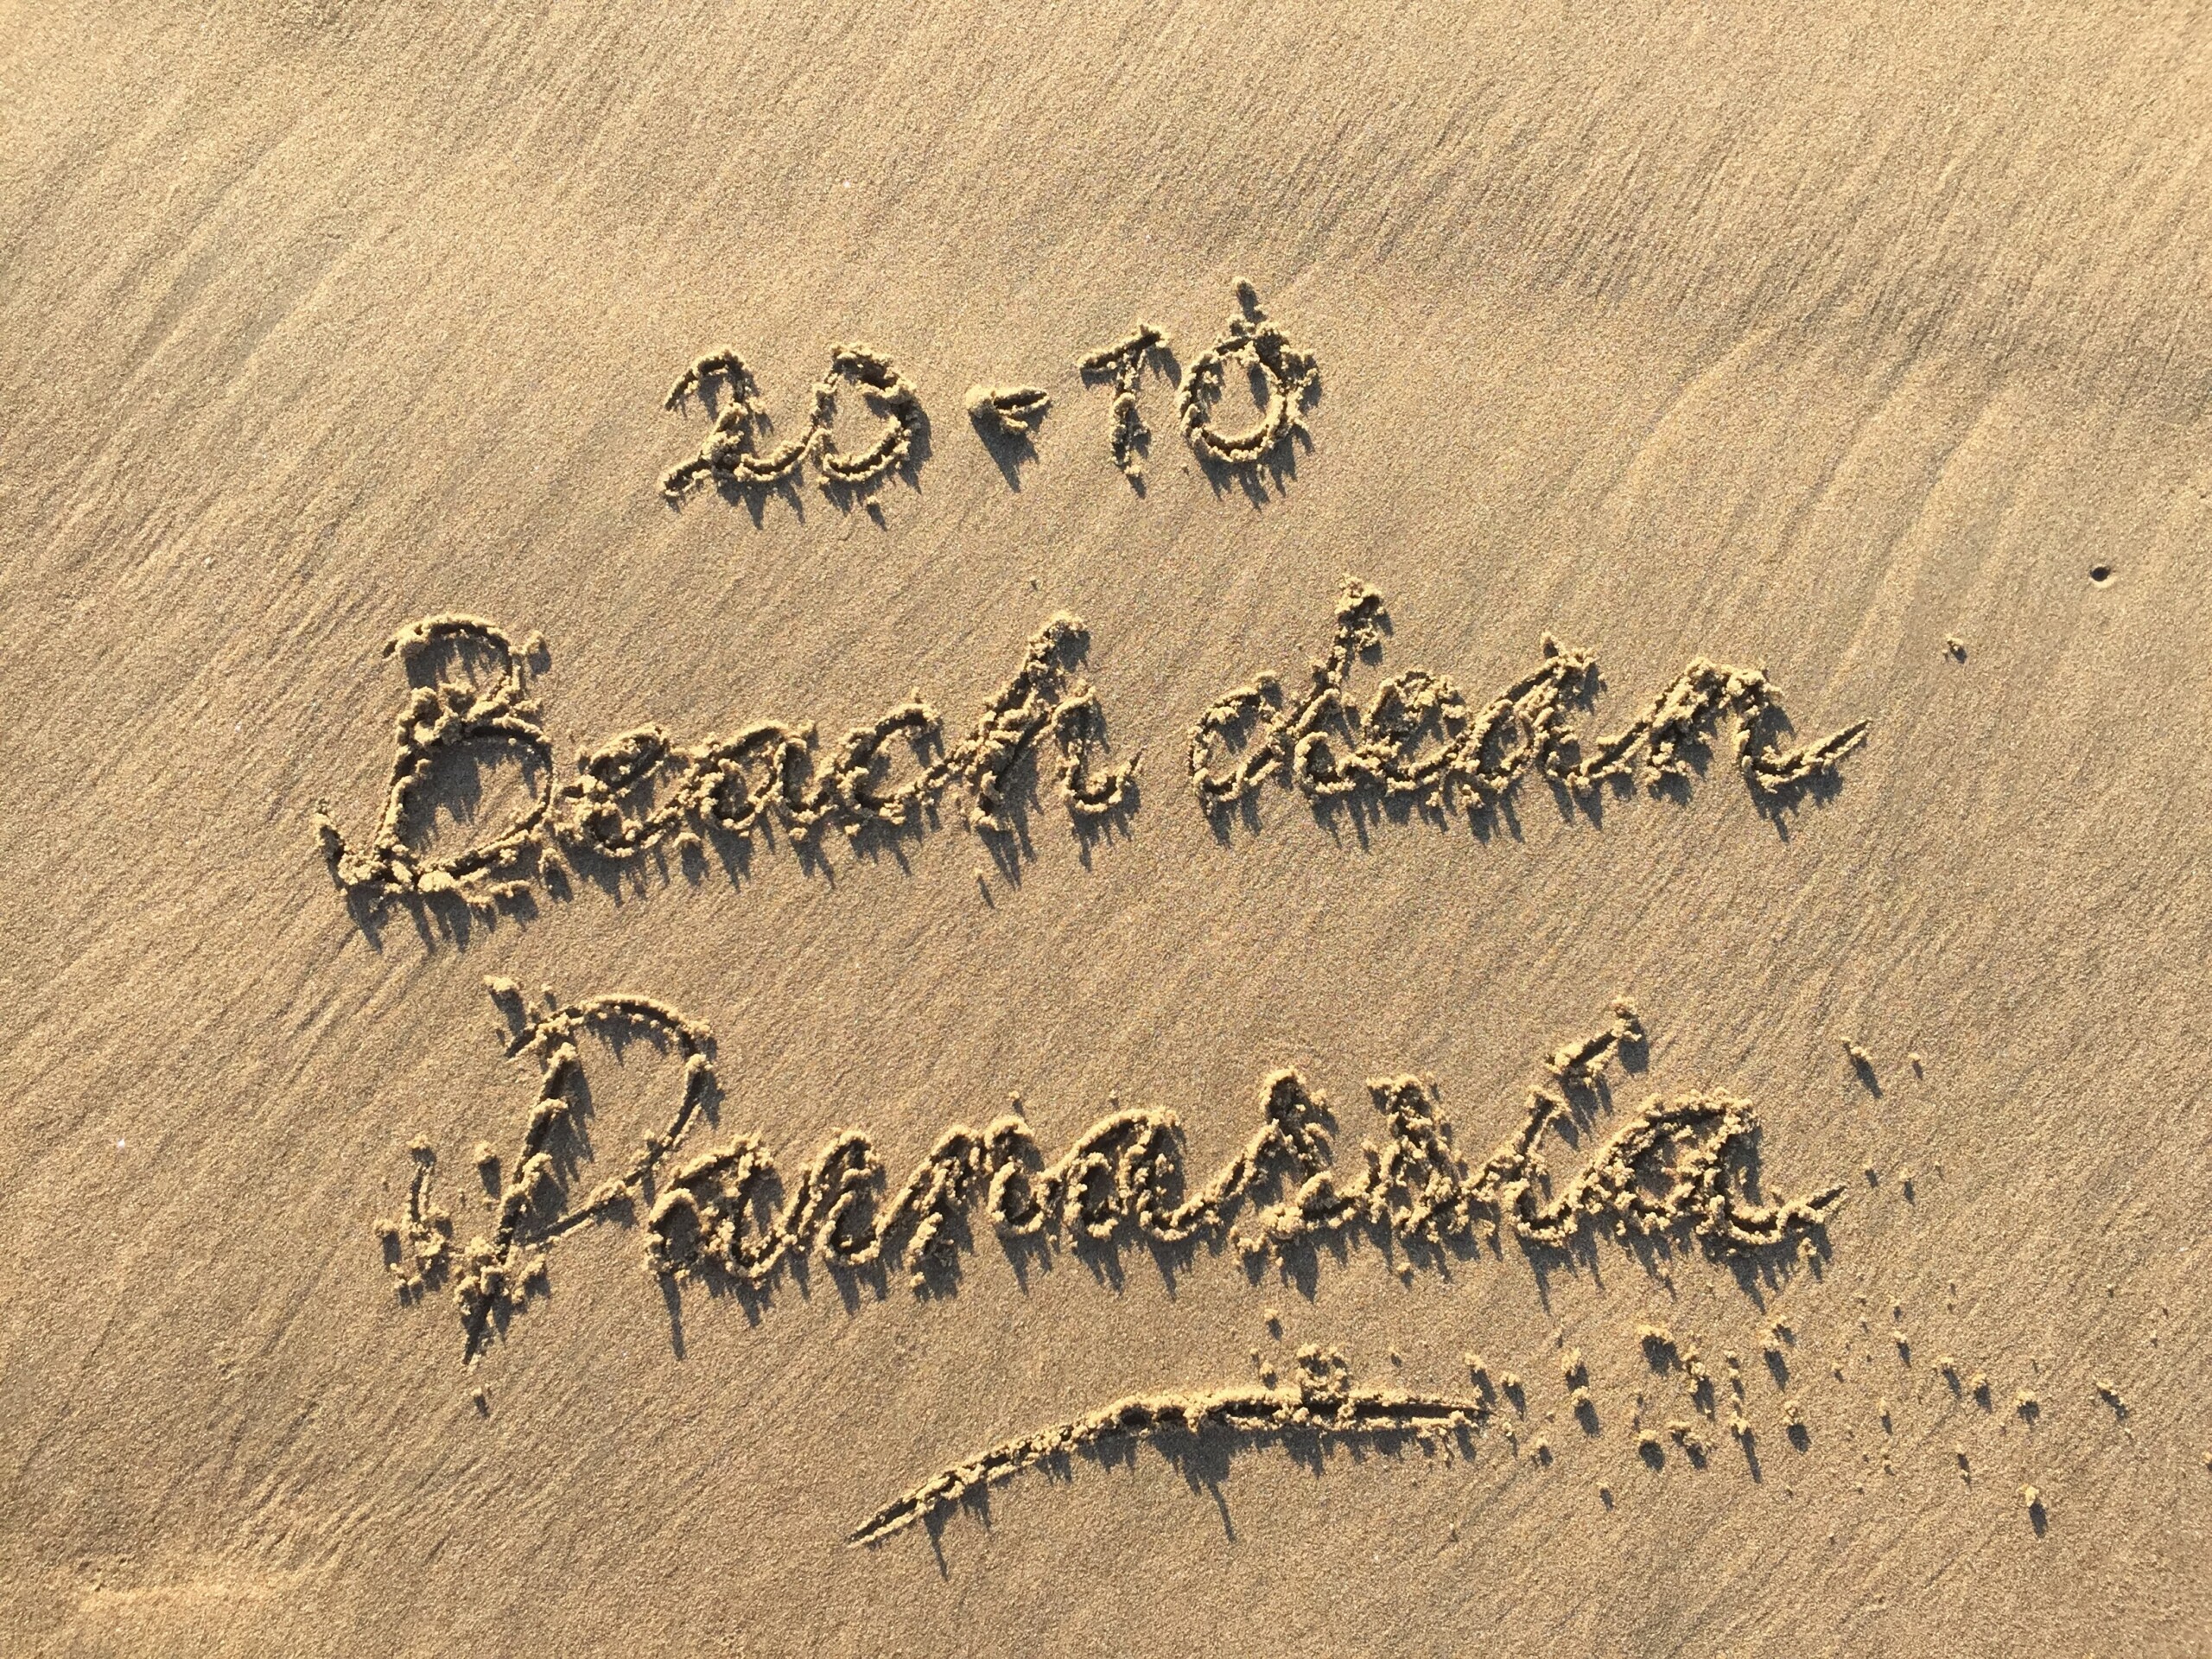 20-10
Beach clean
Parnassia